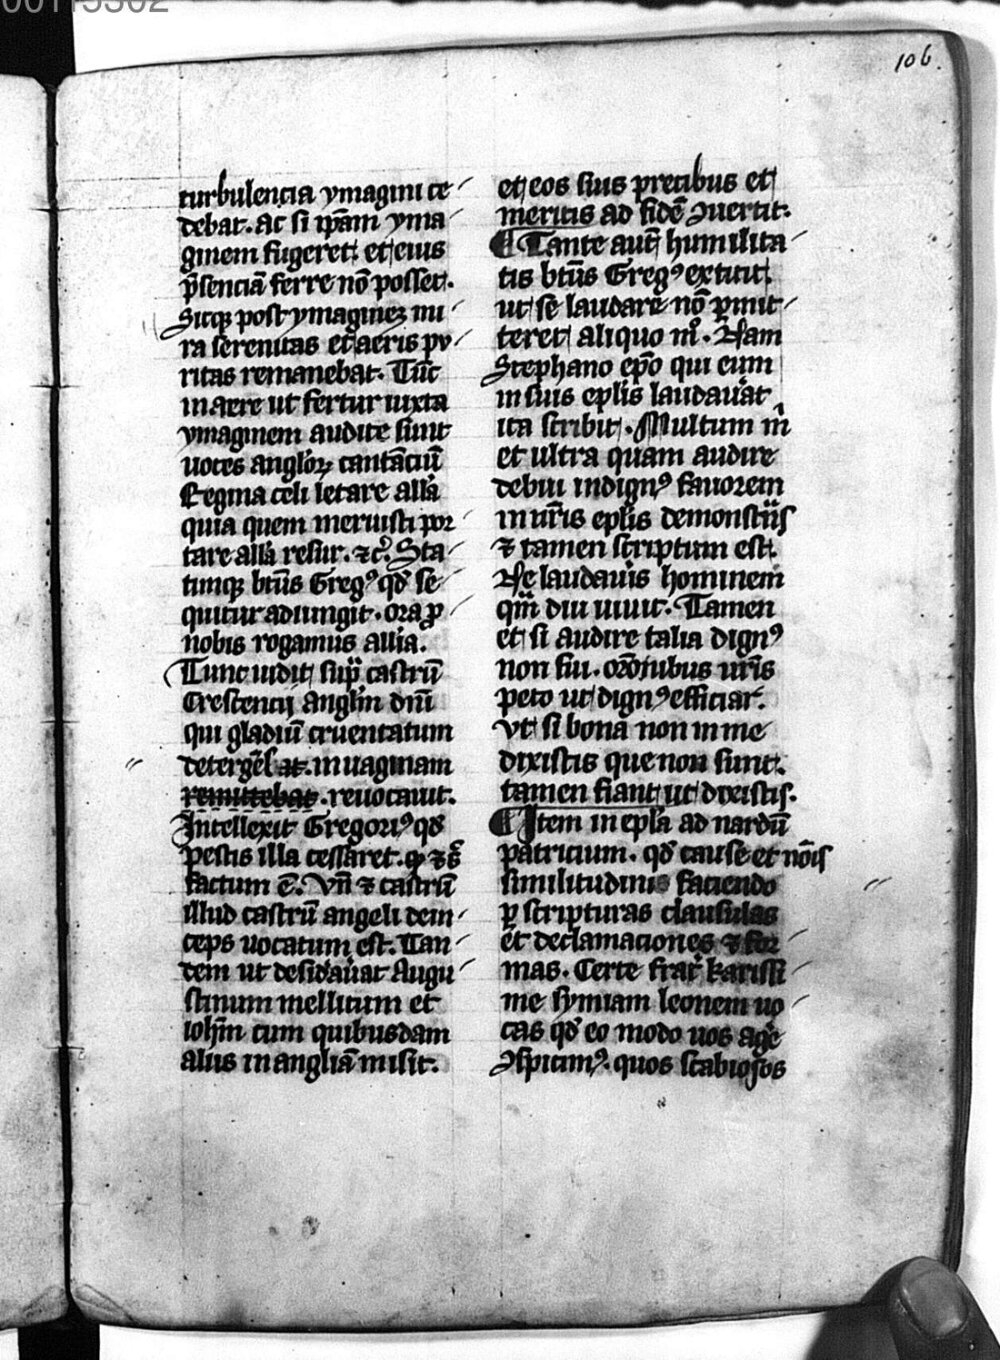 106.
turbulencia ymagini ce
debat. ac si ip̄am yma
ginem fugeret. et eius
p̄senciā ferre nō posset.
Sicqꝫ post ymaginez mi
ra serenitas et aeris pu
ritas remanebat. Tūc
in aere ut fertur iuxta
ymaginem audite sunt
uoces anglōꝝ cantāciū
Regina celi letare all̄a
quia quem meruisti por
tare all̄a resur. ⁊c̄. Sta
timqꝫ bt̄us Gregꝰ qd̄ se
quitur adiungit. ora ꝓ
nobis rogamus allia.
Tunc uidit sup̄ castrū
Crescencij angl̄m dn̄i
qui gladiū cruentatum
detergēs at. in uaginam
remittebat. reuocauit.
Intellexit Gregoriꝰ qd̄
pestis illa cessaret. ꝙ ⁊
factum ē. Vn̄ ⁊ castrū
illud castrū angeli dein
ceps uocatum est. Tan
dem ut desid̄auat Augu
stinum mellitum et
ioh̄m cum quibusdam
aliis in angliā misit.
et eos suis precibus et
meritis ad fidē ꝯuertit.
¶ Tante aut̄ humilita
tis bt̄us Gregꝰ extitit.
ut se laudare nō ꝑmit
teret aliquo mº. Nam
Stephano ep̄o qui eum
in suis epl̄is laudauāt
ita scribit. Multum m̄
et ultra quam audire
debui indignꝰ fauorem
in ur̄is epl̄is demonst̄is
⁊ tamen scriptum est.
Ne laudauis hominem
qm̄ diu uiuit. Tamen
et si audire talia dignꝰ
non fui. or̄onibus ur̄is
peto ut dignꝰ efficiar.
Vt si bona non in me
dixistis que non sunt.
tamen fiant ut dixistis.
¶ Item in epl̄a ad nardū
patricium. qd̄ cause et nōis
similitudinis faciendo
ꝑ scripturas clausulas
et declamaciones ⁊ for
mas. Certe frat̄ karissi
me symiam leonem uo
cas qd̄ eo modo uos agē
ꝯspicimꝰ. quos scabiosos